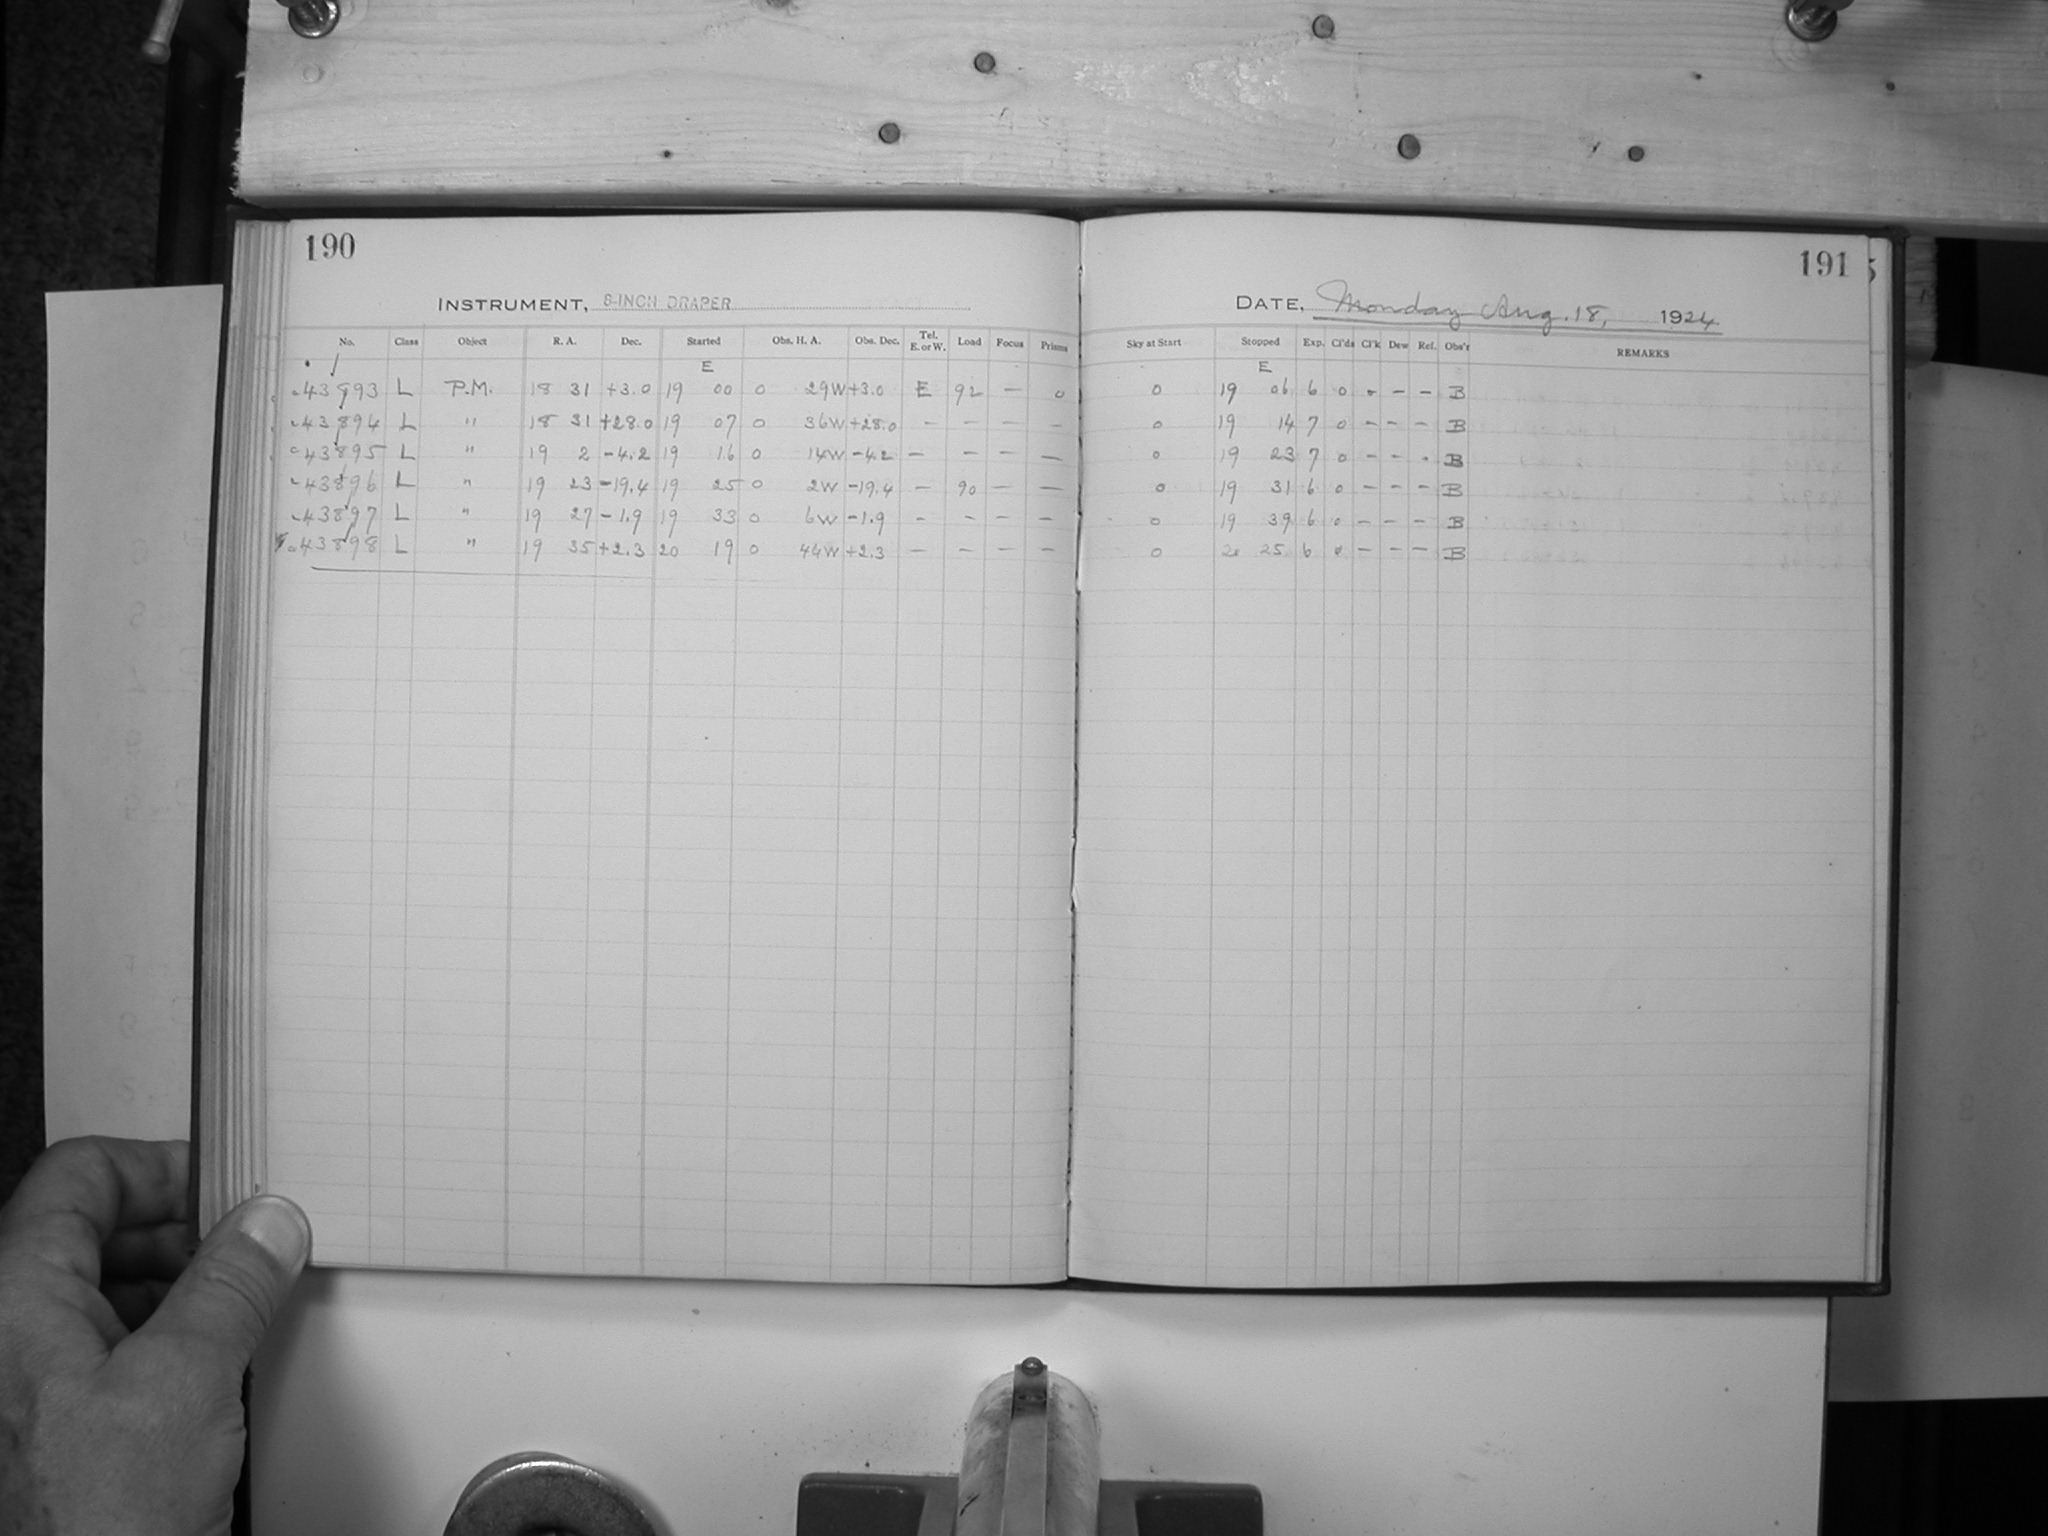 190
INSTRUMENT, 8-INCH DRAPER
No. Class Object R. A. Dec. Started Obs. H. A. Obs. Dec. Tel. E. or W. Load Focus Prisms
E
43893 L P.M. 18 31 +3.0 19 00 0 29W +3.0 E 92 — 0
43894 L " 18 31 +28.0 19 07 0 36W +28.0 — — — —
43895 L " 19 2 -4.2 19 16 0 14W -4.2 — — — —
43896 L " 19 23 -19.4 19 25 0 2W -19.4 — 90 — —
43897 L " 19 27 -1.9 19 33 0 6W -1.9 — — — —
43898 L " 19 35 +2.3 20 19 0 44W +2.3 — — — —
191
DATE, Monday Aug. 18, 1924
Sky at Start Stopped Exp. Cl'ds Cl'k Dew Ref. Obs'r REMARKS
E
0 19 06 6 0 - - - B
0 19 14 7 0 - - - B
0 19 23 7 0 - - - B
0 19 31 6 0 - - - B
0 19 39 6 0 - - - B
0 20 25 6 0 - - - B